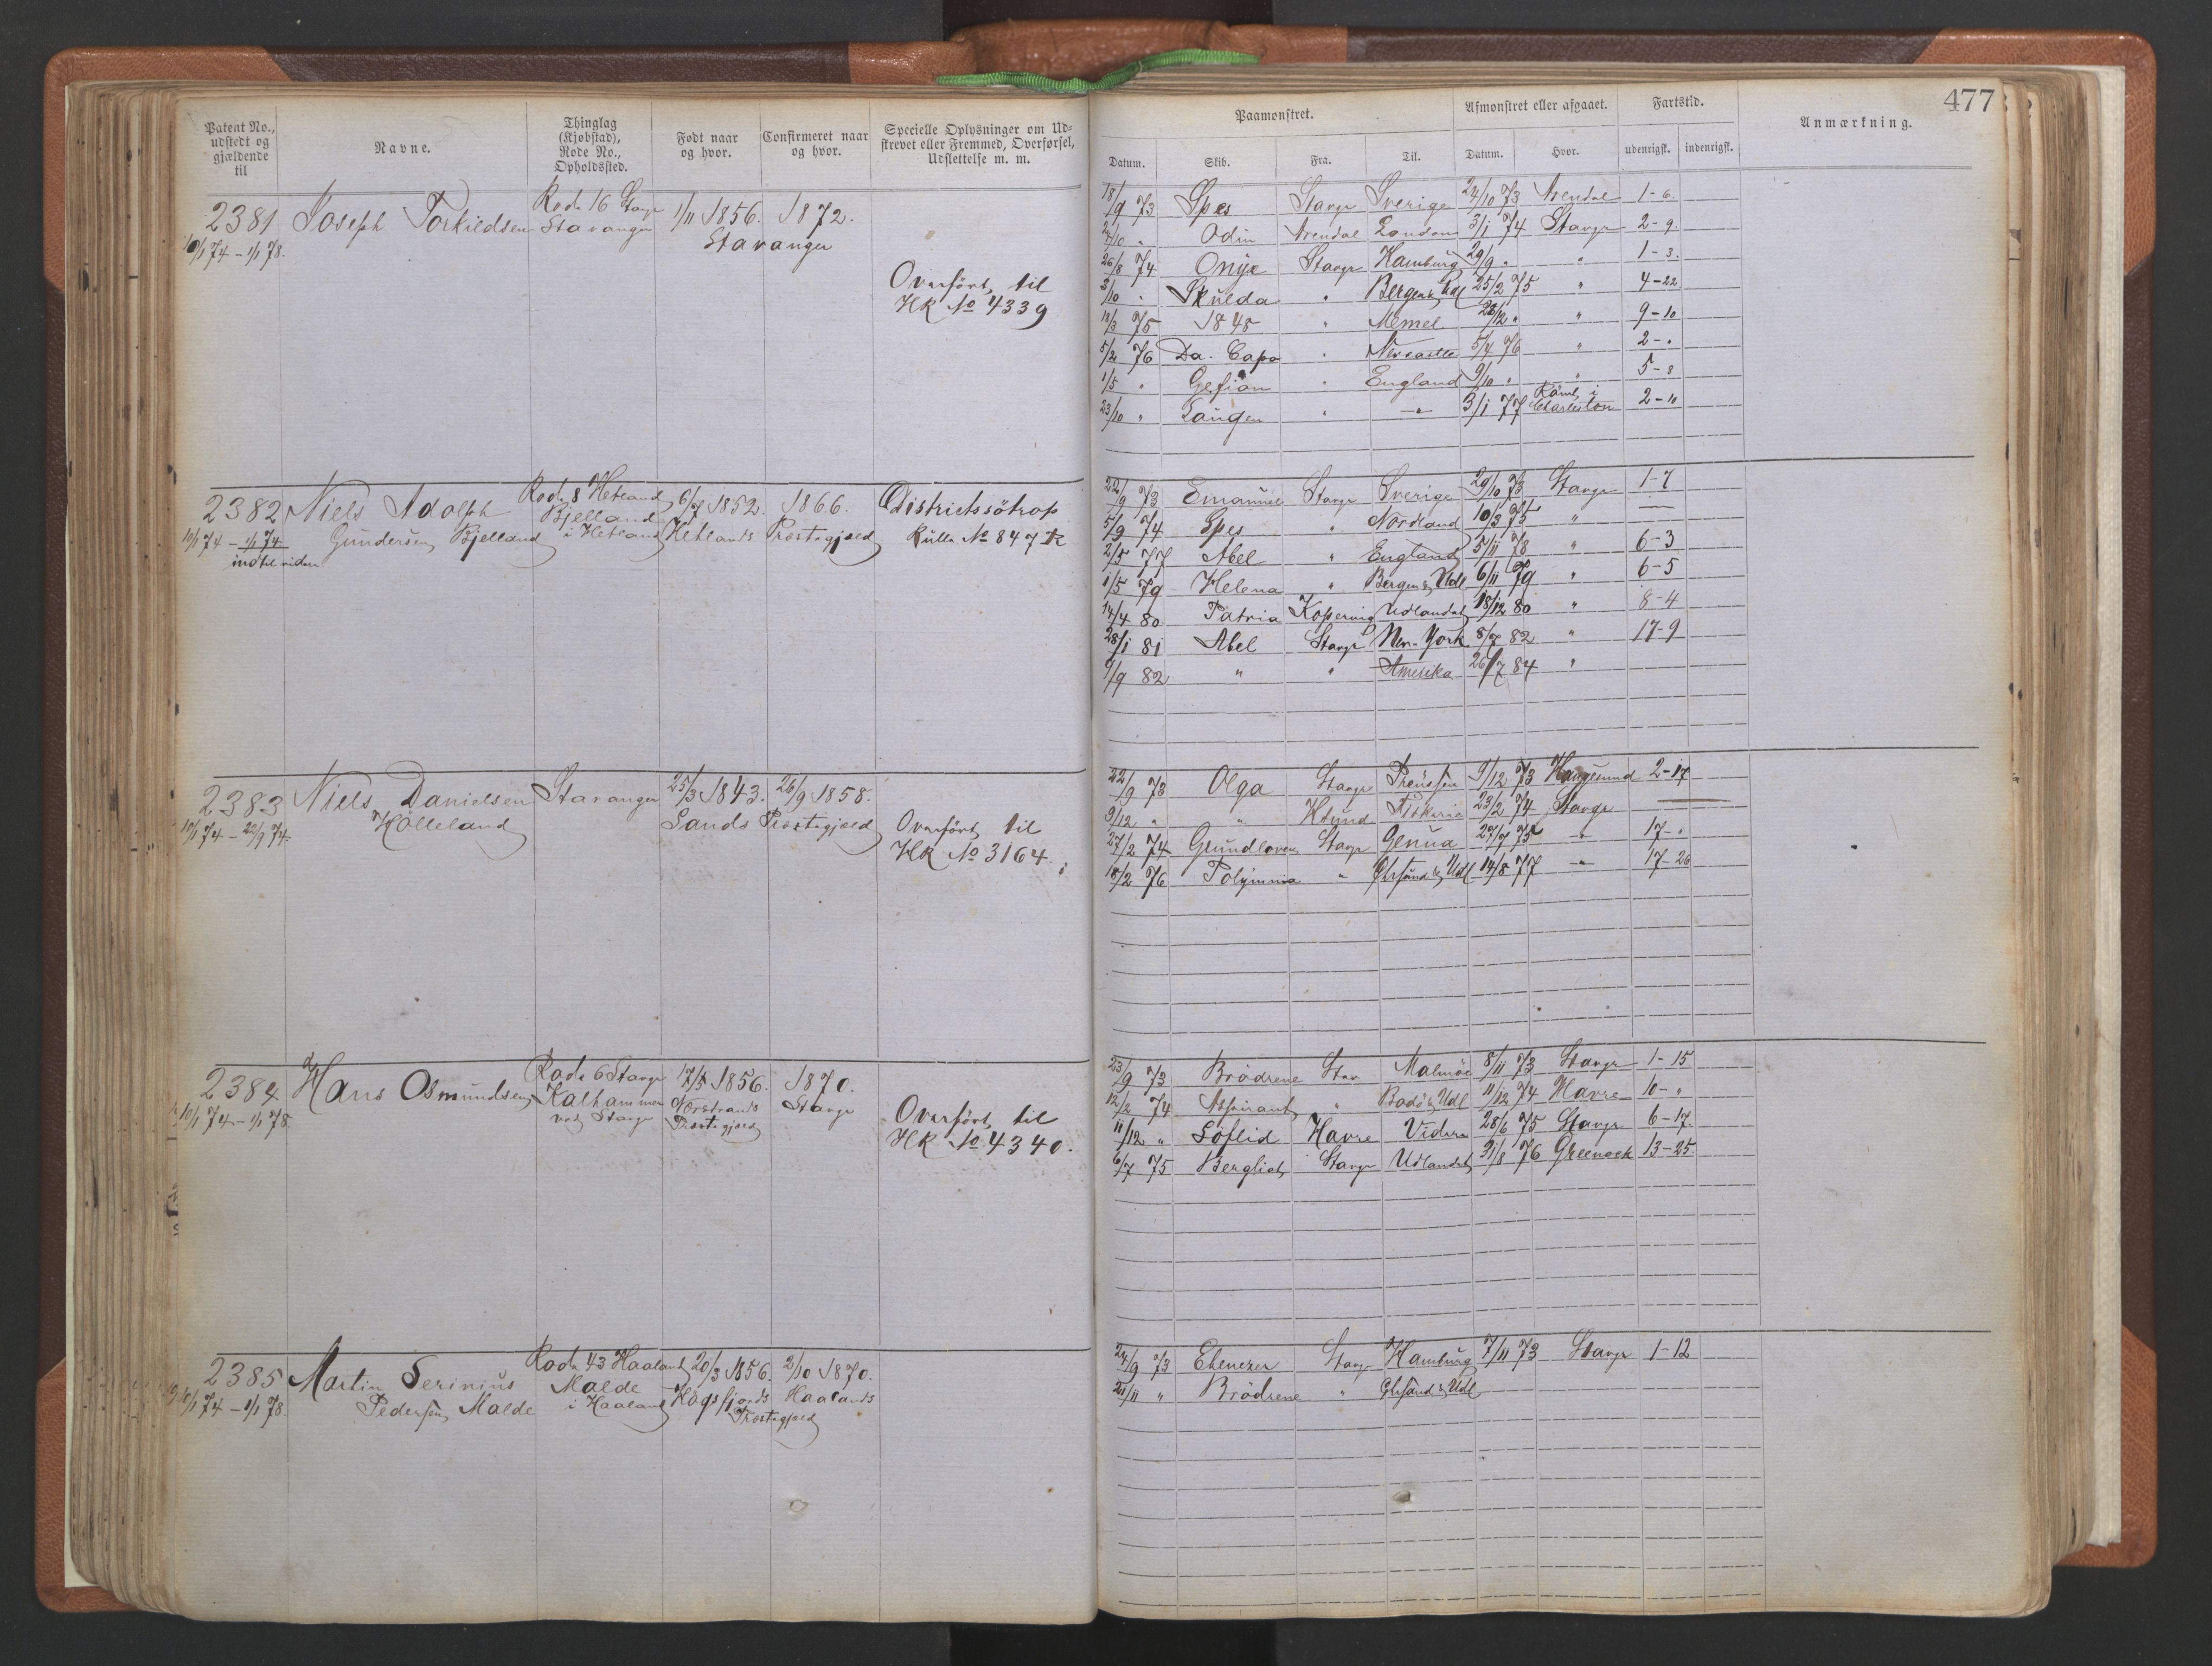 Patent No., udstedt og gjældende til | Navne. | Thinglag (Kjøbstad), Rode No., Opholdssted. | Født naar og hvor. | Confirmeret naar og hvor. | Specielle Oplysninger om Udskrevet eller Fremmed, Overførsel, Udslettelse m. m.
2381 Joseph Torkildsen Rode 16 Stavgr 1/11 1856. 1872.
10/1 74 – 1/1 78. Stavanger Stavanger
Overført til
HK No 4339
2382 Niels Adolph Rode 8 Hetland 6/7 1852. 1866. Districtssötrop
10/1 74 – 1/1 74 Gundersen Bjelland Bjelland i Hetland Hetlands Præstegjæld Rulle No 847 R
indtil videre
2383 Niels Danielsen Stavanger 25/3 1843. 26/9 1858.
10/1 74 – 22/9 74. Hölleland Sands Præstegjæld Overført til
HK No 3164.
2384 Hans Osmundsen Rode 6 Stavgr 17/5 1856. 1870.
10/1 74 – 1/1 78 Kalhammer Norstrands Stavgr
ved Stavgr Præstegjæld Overført til
HK No 4340.
2385 Martin Serinius Rode 43 Haaland 20/3 1856. 2/10 1870.
10/1 74 – 1/1 78. Pedersen Malde Malde i Haaland Högsfjords Haalands
Præstegjæld
477
Paamønstret. | Afmønstret eller afgaaet. | Fartstid. | Anmærkning.
Datum. | Skib. | Fra. | Til. | Datum. | Hvor. | udenrigsk. | indenrigsk.
18/9 73 Spes Stavgr Sverige 24/10 73 Arendal 1-6.
24/10 " Odin Arendal London 3/1 74 Stavgr 2-9.
26/8 74 Onyx Stavgr Hamburg 29/9 " " 1-3.
3/10 " Skulda " Bergen & Udl 25/2 75 " 4-22
18/3 75 1848 " Memel 28/12 " " 9-10
5/2 76 Da. Capo " Newcastle 5/4 76 " 2-"
1/5 " Gefion " England 9/10 " " 5-8
23/10 " Laugen " -"- 3/1 77 Rømt i Charleston 2-10
22/9 73 Emanuel Stavgr Sverige 29/10 73 Stavgr 1-7
5/9 74 Spes " Nordland 10/3 75 " —
2/5 77 Abel " England 5/11 78 " 6-3
1/5 79 Helena " Bergen & Udl 6/11 79 " 6-5
14/4 80 Patria Kopervig Udlandet 18/12 80 " 8-4
28/1 81 Abel Stavgr New-York 8/7 82 " 17-9
1/9 82 " " Amerika 26/7 84 "
22/9 73 Olga Stavgr Preussen 9/12 73 Haugesund 2-17
9/12 " " Hsund Fiskeri 23/2 74 Stavgr —
27/2 74 Grundloven Stavgr Genua 27/7 75 " 17-"
18/2 76 Polymnia " Egrsund & Udl 14/8 77 -"- 17-26
23/9 73 Brödrene Stav Malmöe 8/11 73 Stavgr 1-15
12/2 74 Aspirant " Bodö & Udl 11/12 74 Havre 10-"
11/12 " Soflid Havre Videre 28/6 75 Stavgr 6-17.
6/7 75 Bergliot Stavgr Udlandet 31/8 76 Greenock 13-25.
24/9 73 Ebenezer Stavgr Hamburg 7/11 73 Stavgr 1-12
21/11 " Brödrene " Egrsund & Udl